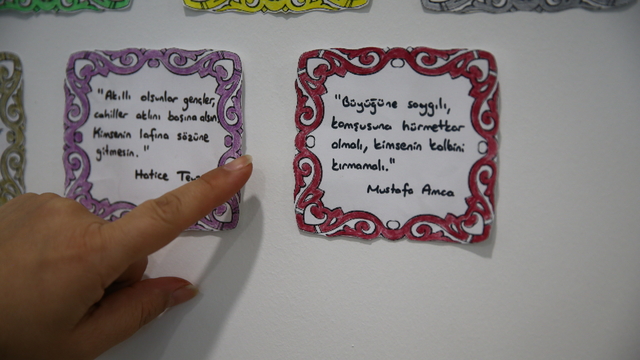 "Akıllı olsunlar gençler,
cahiller aklını başına alsın
Kimsenin lafına sözüne
gitmesin."
Hatice
"Büyüğüne saygılı,
komşusuna hürmetkar
olmalı, kimsenin kalbini
kırmamalı."
Mustafa Amca